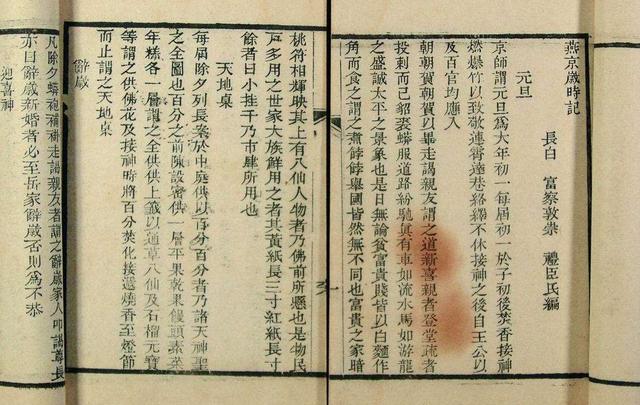 燕京歲時記
長白　富察敦崇　禮臣氏編
元旦
京師謂元旦為大年初一每屆初一於子初後焚香接神
燃爆竹以致敬連霄達巷絡繹不休接神之後自王公以
及百官均應入
朝朝賀朝賀已畢走謁親友謂之道新喜親者登堂疏者
投刺而已貂裘蟒服道路紛馳眞有車如流水馬如游龍
之盛誠太平之景象也是日無論貧富貴賤皆以白麵作
角而食之謂之煮餑餑舉國皆然無不同也富貴之家暗
桃符相輝映其上有八仙人物者乃佛前所懸也是物民
戶多用之世家大族鮮用之者其黃紙長三寸紅紙長寸
餘者曰小挂千乃市肆所用也
天地桌
每屆除夕列長案於中庭供以百分百分者乃諸天神聖
之全圖也百分之前陳設蜜供一層平果乾果饅頭素菜
年糕各一層謂之全供供上籤以通草八仙及石榴元寶
等謂之供佛花及接神時將百分焚化接遞燒香至燈節
而止謂之天地桌
辭歲
凡除夕蟒袍補褂走謁親友者謂之辭歲家人叩謁尊長
亦曰辭歲新婚者必至岳家辭歲否則為不恭
迎喜神